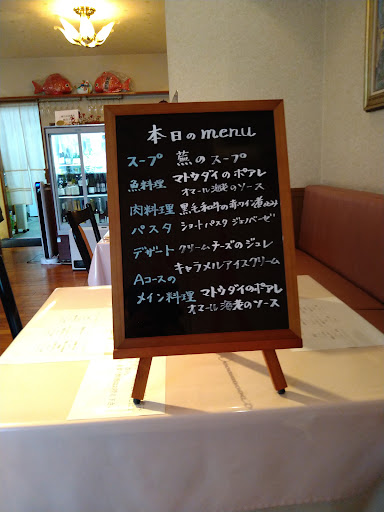 本日のmenu
スープ 蕪のスープ
魚料理 マトウダイのポアレ
オマール海老のソース
肉料理 黒毛和牛の赤ワイン煮込み
パスタ ショートパスタ ジェノベーゼ
デザート クリームチーズのジュレ
キャラメルアイスクリーム
Aコースの
メイン料理 マトウダイのポアレ
オマール海老のソース